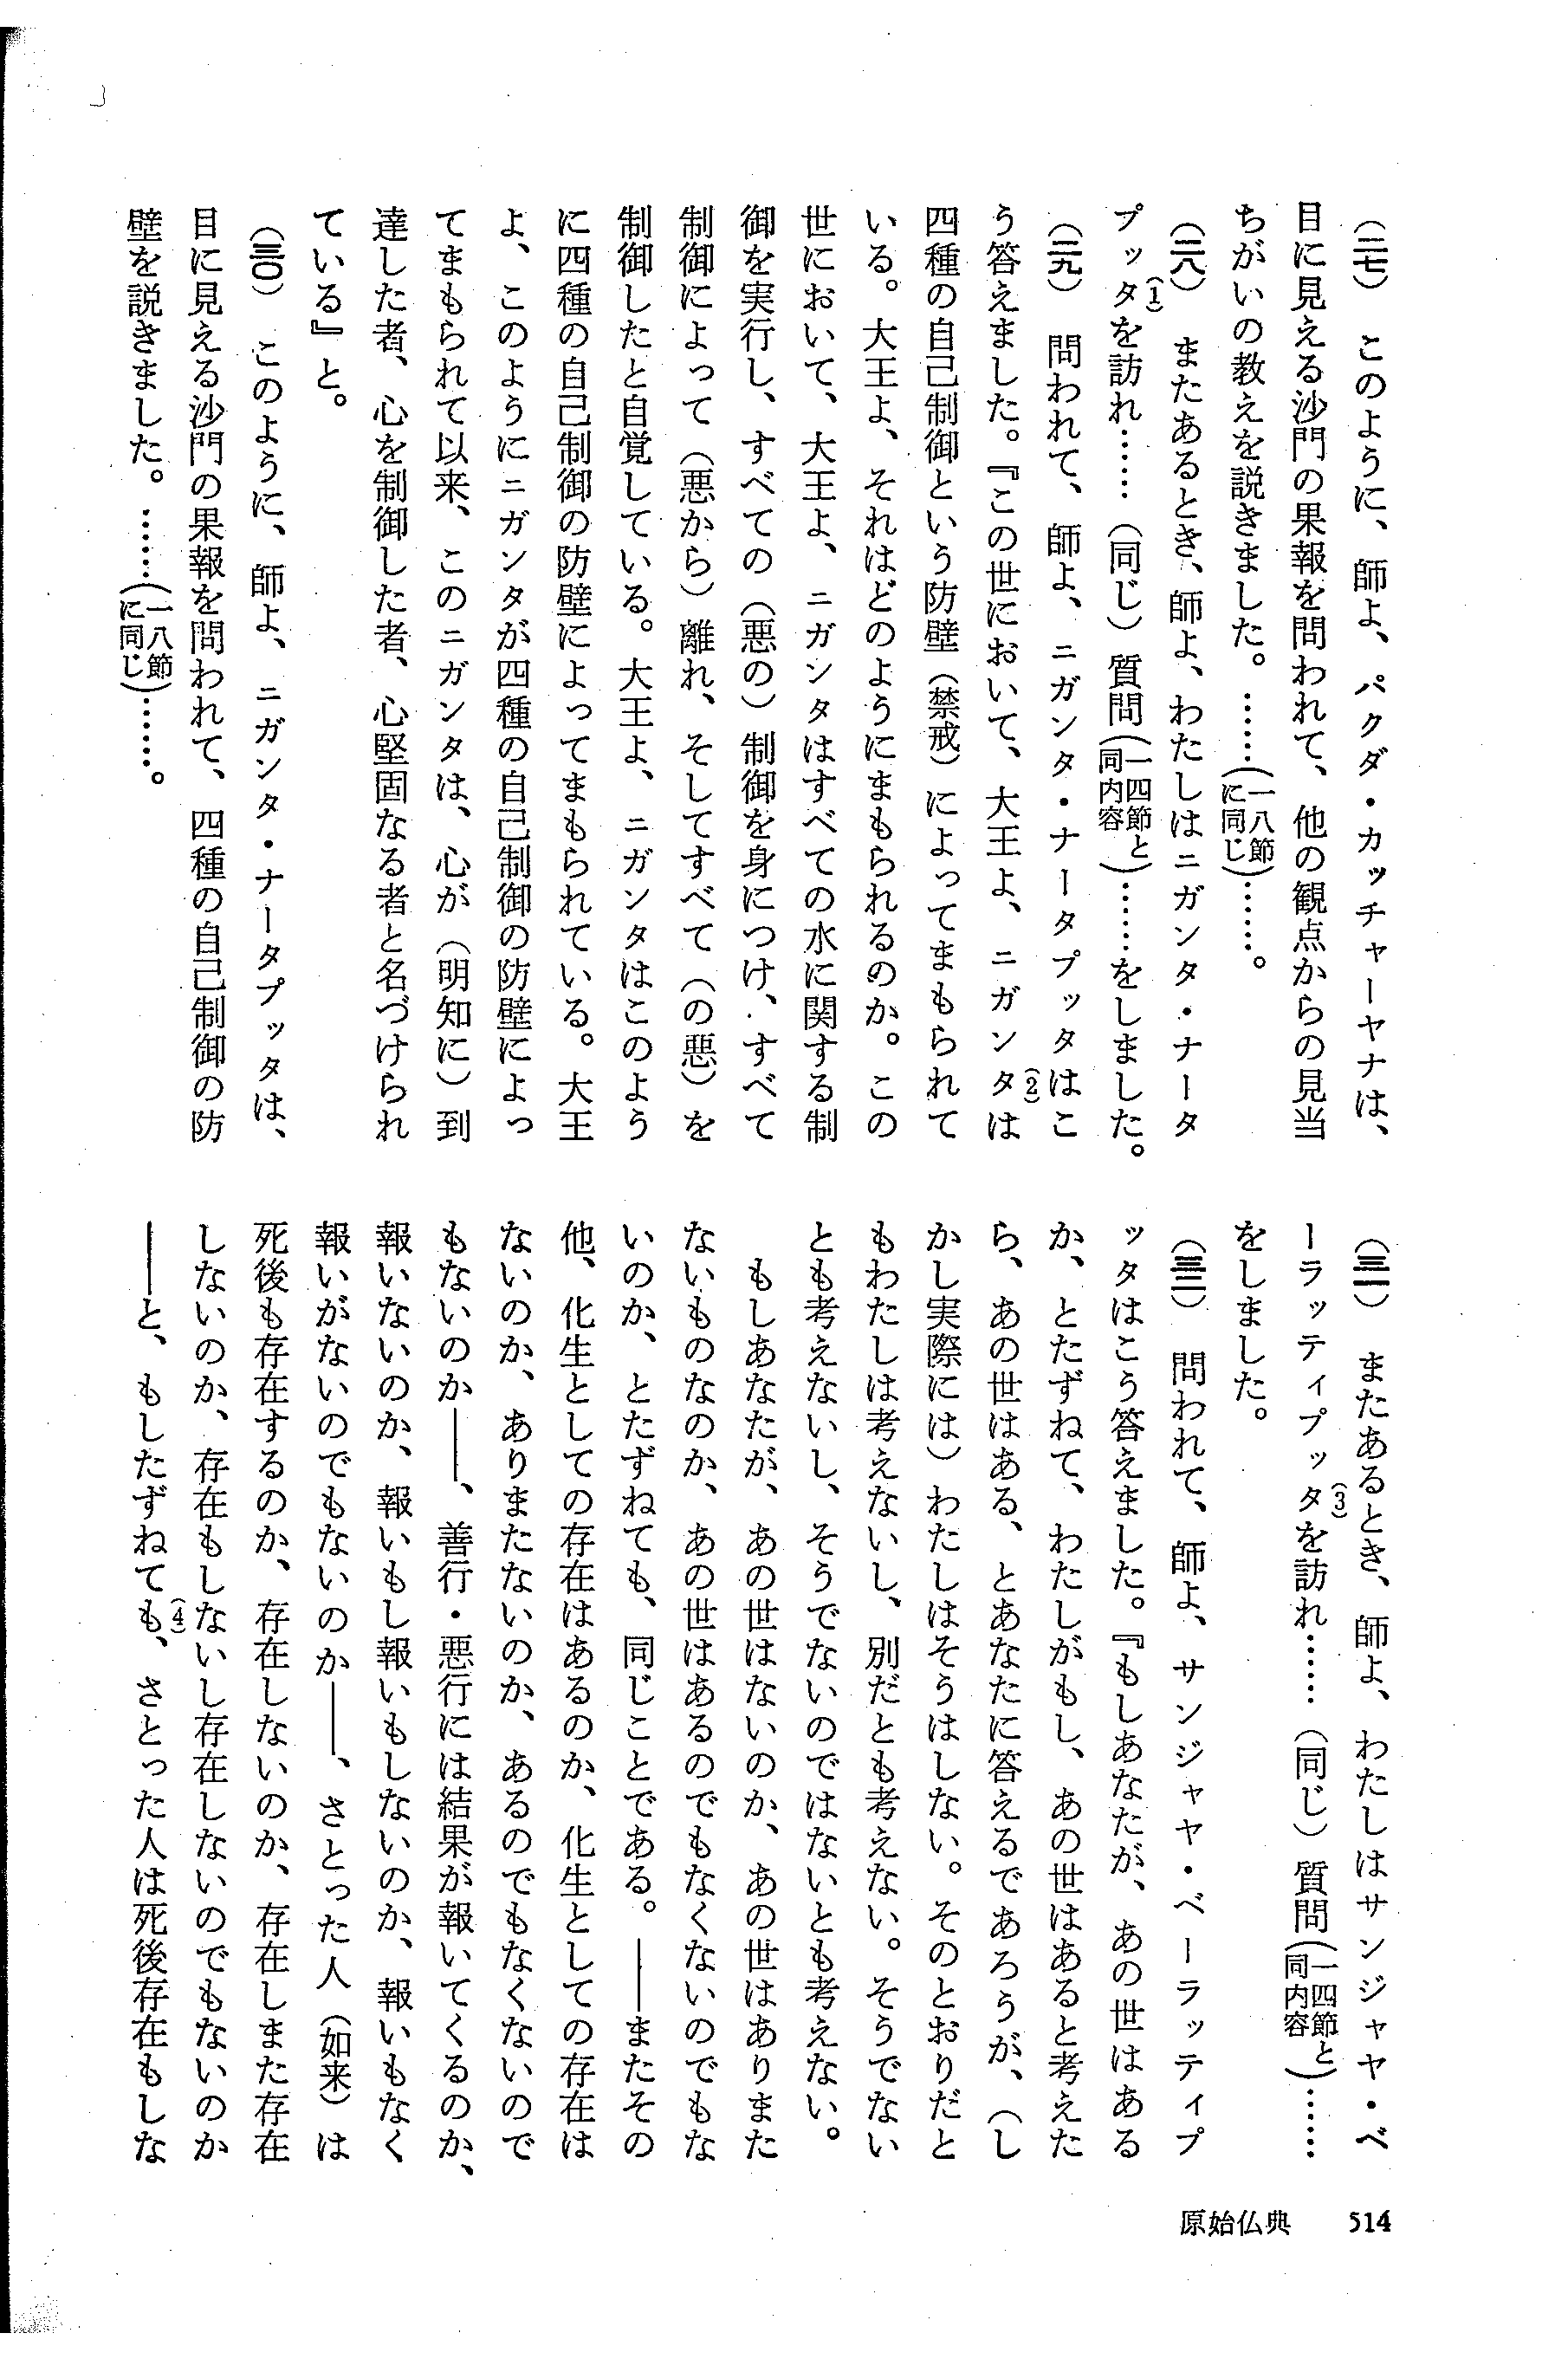 （二七）　このように、師よ、パクダ・カッチャーヤナは、
目に見える沙門の果報を問われて、他の観点からの見当
ちがいの教えを説きました。……（一八節に同じ）……。
（二八）　またあるとき、師よ、わたしはニガンタ・ナータ
プッタ(1)を訪れ……（同じ）質問（一四節と同内容）……をしました。
（二九）　問われて、師よ、ニガンタ・ナータプッタはこ
う答えました。『この世において、大王よ、ニガンタ(2)は
四種の自己制御という防壁（禁戒）によってまもられて
いる。大王よ、それはどのようにまもられるのか。この
世において、大王よ、ニガンタはすべての水に関する制
御を実行し、すべての（悪の）制御を身につけ、すべて
制御によって（悪から）離れ、そしてすべて（の悪）を
制御したと自覚している。大王よ、ニガンタはこのよう
に四種の自己制御の防壁によってまもられている。大王
よ、このようにニガンタが四種の自己制御の防壁によっ
てまもられて以来、このニガンタは、心が（明知に）到
達した者、心を制御した者、心堅固なる者と名づけられ
ている』と。
（三〇）　このように、師よ、ニガンタ・ナータプッタは、
目に見える沙門の果報を問われて、四種の自己制御の防
壁を説きました。……（一八節に同じ）……。
（三一）　またあるとき、師よ、わたしはサンジャヤ・ベ
ーラッティプッタ(3)を訪れ……（同じ）質問（一四節と同内容）……
をしました。
（三二）　問われて、師よ、サンジャヤ・ベーラッティプ
ッタはこう答えました。『もしあなたが、あの世はある
か、とたずねて、わたしがもし、あの世はあると考えた
ら、あの世はある、とあなたに答えるであろうが、（し
かし実際には）わたしはそうはしない。そのとおりだと
もわたしは考えないし、別だとも考えない。そうでない
とも考えないし、そうでないのではないとも考えない。
もしあなたが、あの世はないのか、あの世はありまた
ないものなのか、あの世はあるのでもなくないのでもな
いのか、とたずねても、同じことである。――またその
他、化生としての存在はあるのか、化生としての存在は
ないのか、ありまたないのか、あるのでもなくないので
もないのか――、善行・悪行には結果が報いてくるのか、
報いないのか、報いもし報いもしないのか、報いもなく
報いがないのでもないのか――、さとった人（如来）は
死後も存在するのか、存在しないのか、存在しまた存在
しないのか、存在もしないし存在しないのでもないのか
――と、もしたずねても(4)、さとった人は死後存在もしな
原始仏典　514